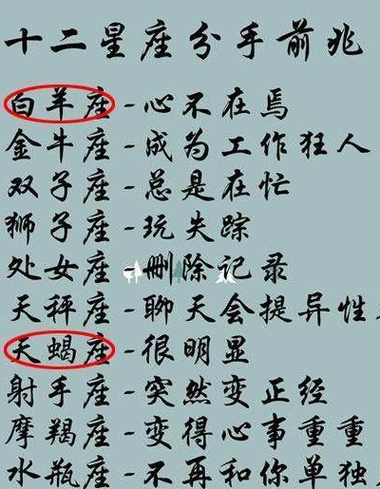 十二星座分手前兆
白羊座-心不在焉
金牛座-成为工作狂人
双子座-总是在忙
狮子座-玩失踪
处女座-删除记录
天秤座-聊天会提异性
天蝎座-很明显
射手座-突然变正经
摩羯座-变得心事重重
水瓶座-不再和你单独